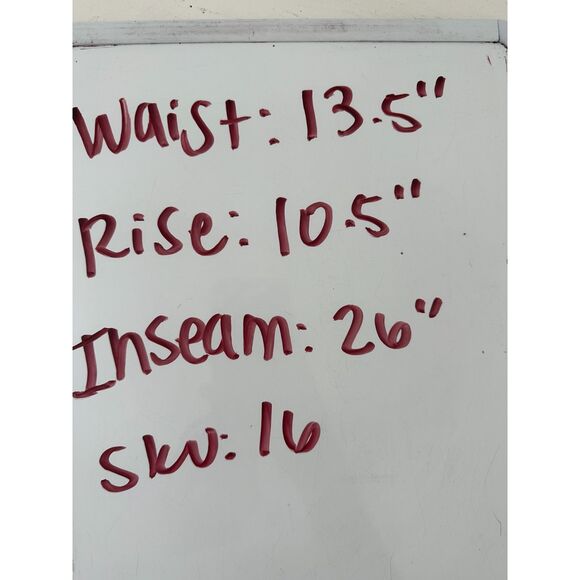 Waist: 13.5"
Rise: 10.5"
Inseam: 26"
Sku: 16